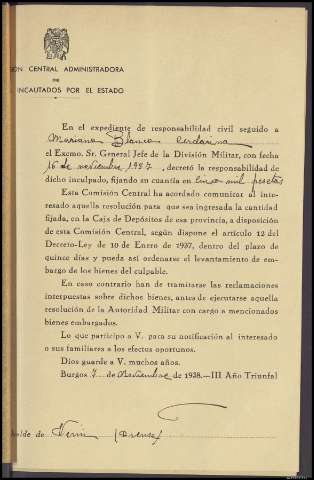 ÓN CENTRAL ADMINISTRADORA
DE
INCAUTADOS POR EL ESTADO
En el expediente de responsabilidad civil seguido a
Mariano Blanco
el Excmo. Sr. General Jefe de la División Militar, con fecha
16 de noviembre 1937, decretó la responsabilidad de
dicho inculpado, fijando su cuantía en cinco mil pesetas
Esta Comisión Central ha acordado comunicar al inte-
resado aquella resolución para que sea ingresada la cantidad
fijada, en la Caja de Depósitos de esa provincia, a disposición
de esta Comisión Central, según dispone el artículo 12 del
Decreto-Ley de 10 de Enero de 1937, dentro del plazo de
quince días y pueda así ordenarse el levantamiento de em-
bargo de los bienes del culpable.
En caso contrario han de tramitarse las reclamaciones
interpuestas sobre dichos bienes, antes de ejecutarse aquella
resolución de la Autoridad Militar con cargo a mencionados
bienes embargados.
Lo que participo a V. para su notificación al interesado
o sus familiares a los efectos oportunos.
Dios guarde a V. muchos años.
Burgos 7 de Noviembre de 1938.—III Año Triunfal
alde de Verin (Orense)